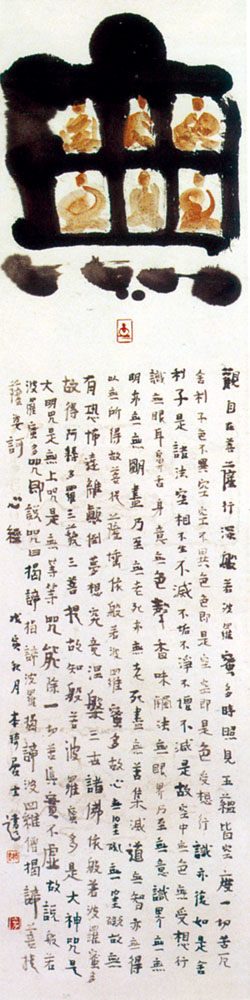 觀自在菩薩行深般若波羅蜜多時照見五蘊皆空度一切苦厄
舍利子色不異空空不異色色即是空空即是色受想行識亦復如是舍
利子是諸法空相不生不滅不垢不淨不增不減是故空中無色無受想行
識無眼耳鼻舌身意無色聲香味觸法無眼界乃至無意識界無無
明亦無無明盡乃至無老死亦無老死盡無苦集滅道無智亦無得
以無所得故菩提薩埵依般若波羅蜜多故心無罣礙無罣礙故無
有恐怖遠離顛倒夢想究竟涅槃三世諸佛依般若波羅蜜多
故得阿耨多羅三藐三菩提故知般若波羅蜜多是大神咒是
大明咒是無上咒是無等等咒能除一切苦真實不虛故說般若
波羅蜜多咒即說咒曰揭諦揭諦波羅揭諦波羅僧揭諦菩提
薩婆訶 心經 戊寅秋月 居士